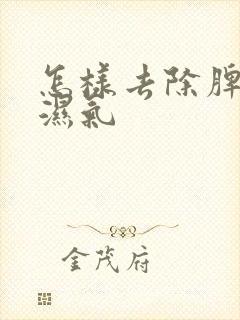 怎樣去除脾
濕氣
金茂府